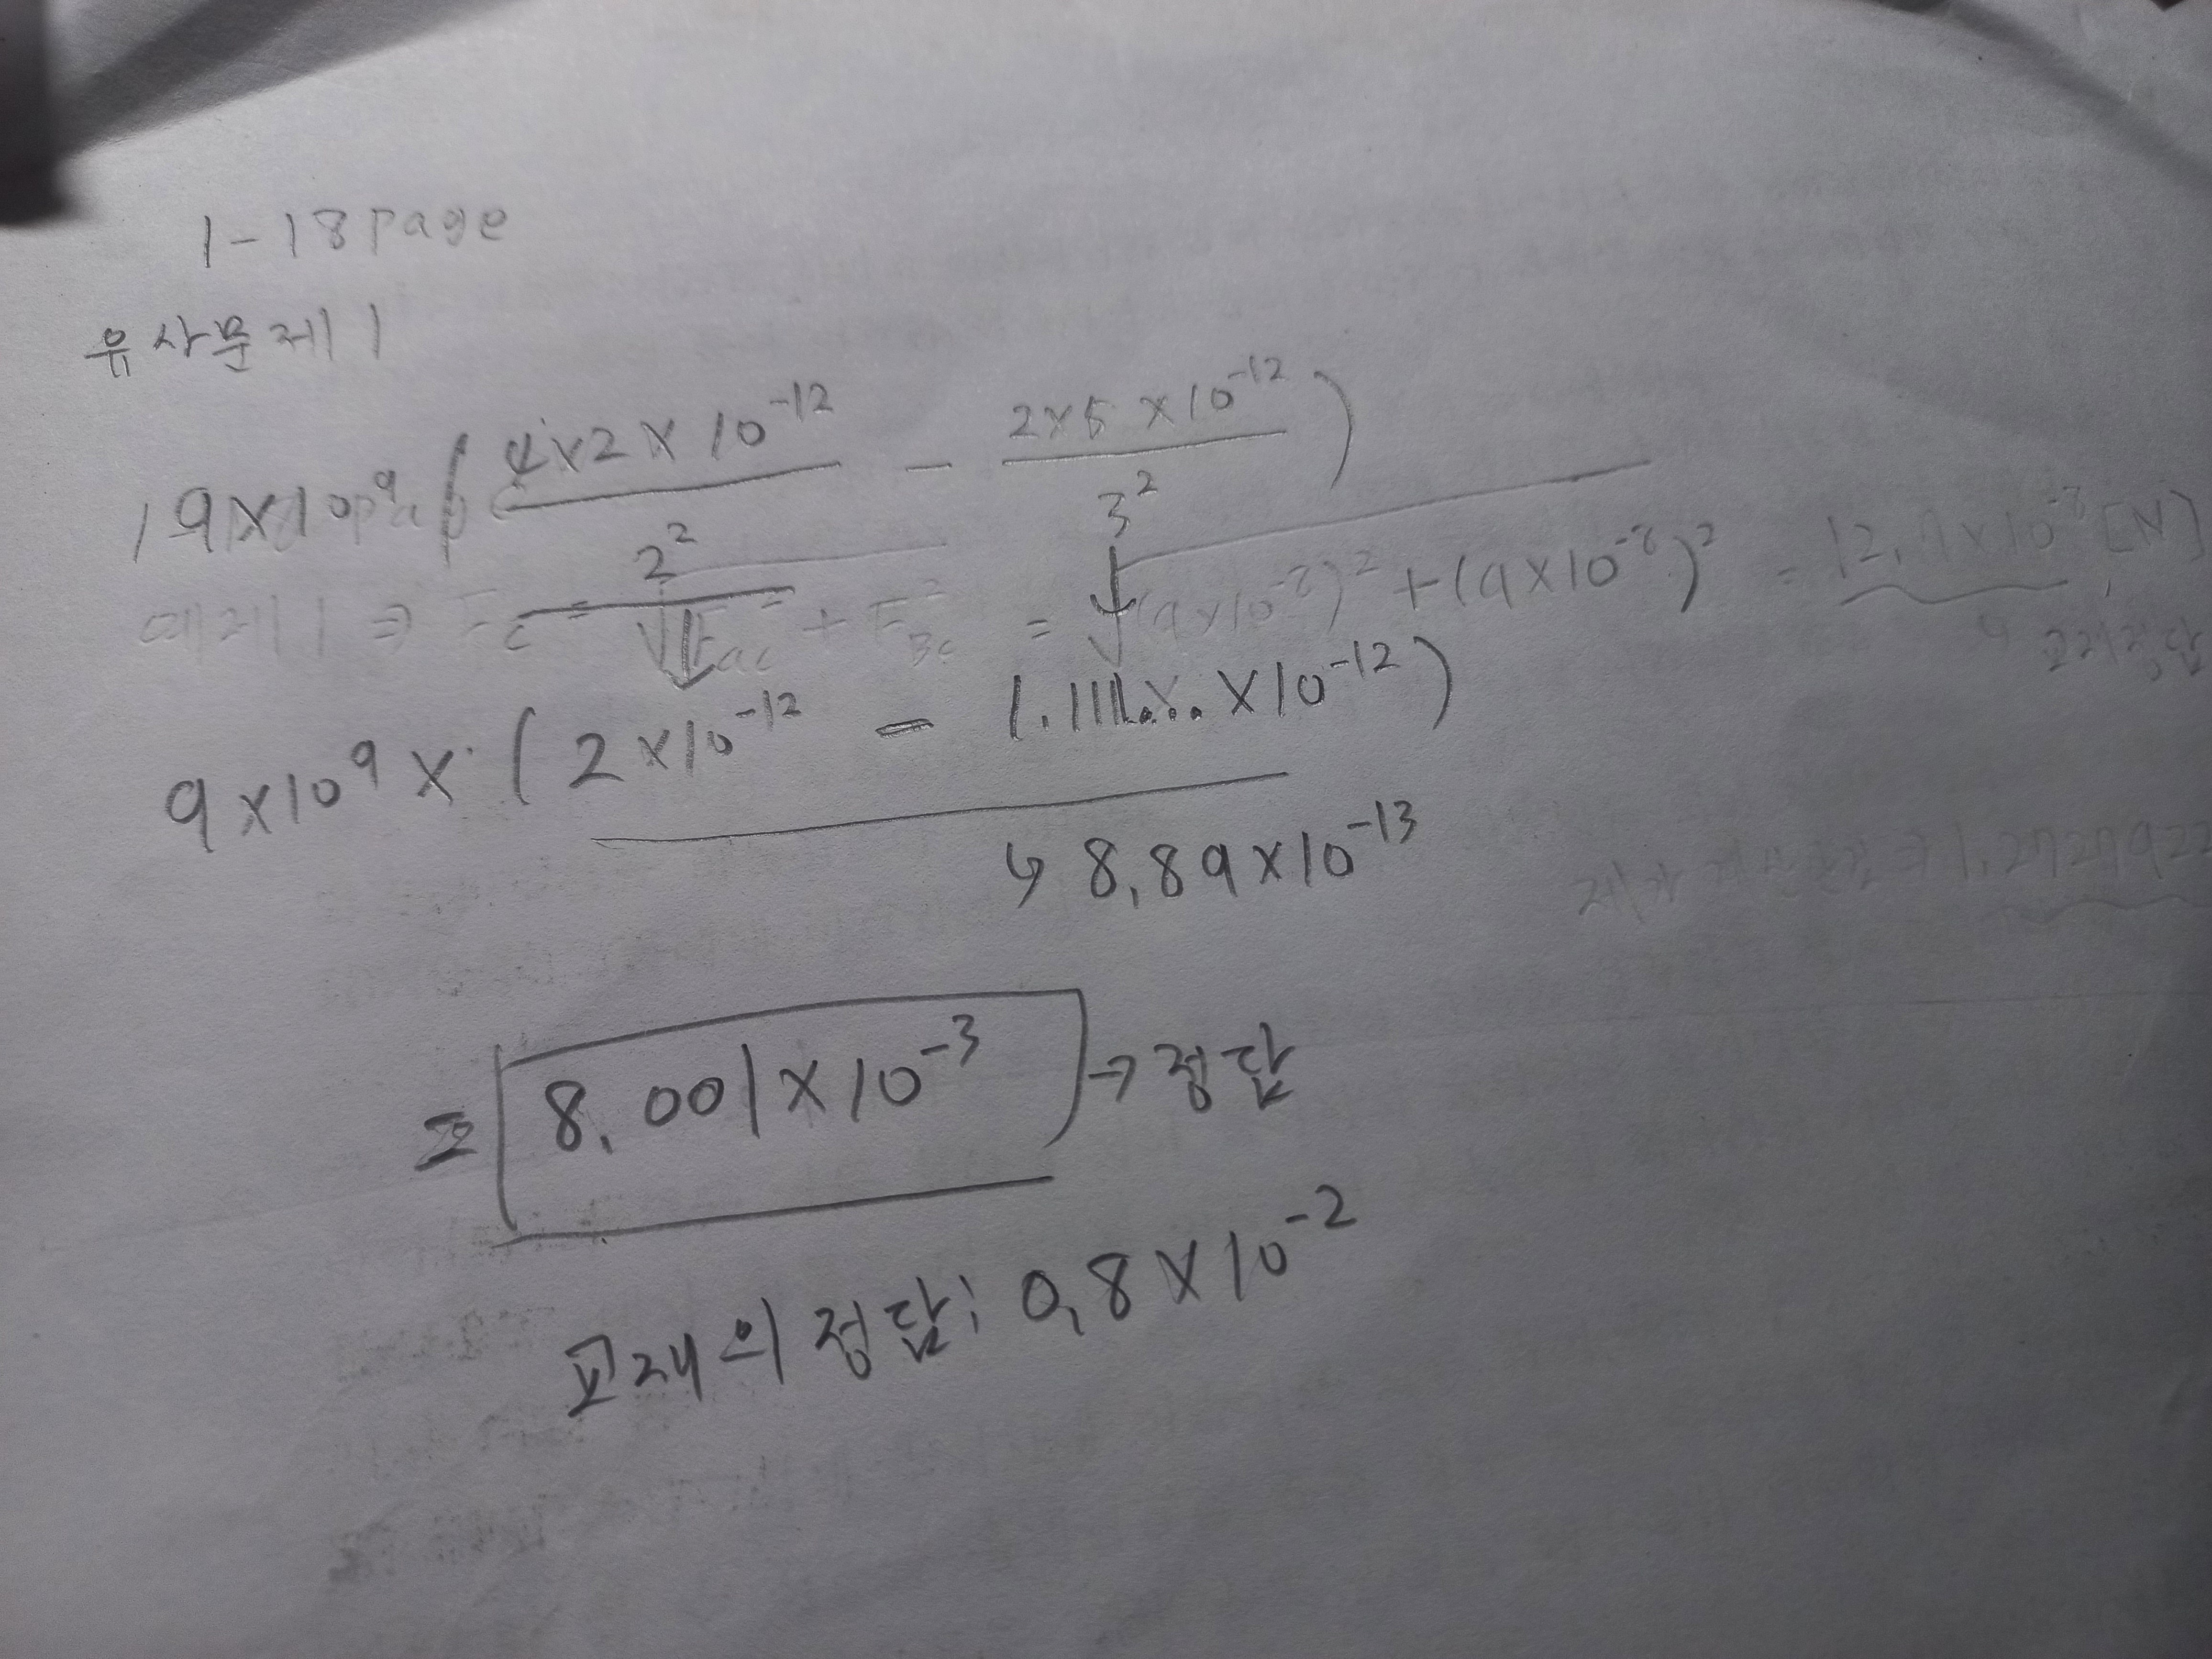 1-18page
유사문제1
9×10⁹ ( 4×2×10⁻¹² / 2² - 2×5×10⁻¹² / 3² )
예제1 ⇒ Fc = √Fac² + FBc² = √(9×10⁻⁸)² + (9×10⁻⁸)² = 12.7×10⁻⁸ [N]
9×10⁹ × ( 2×10⁻¹² - 1.111... ×10⁻¹² )
↳ 8.89×10⁻¹³
= 8.001×10⁻³ → 정답
교재의 정답: 0.8×10⁻²